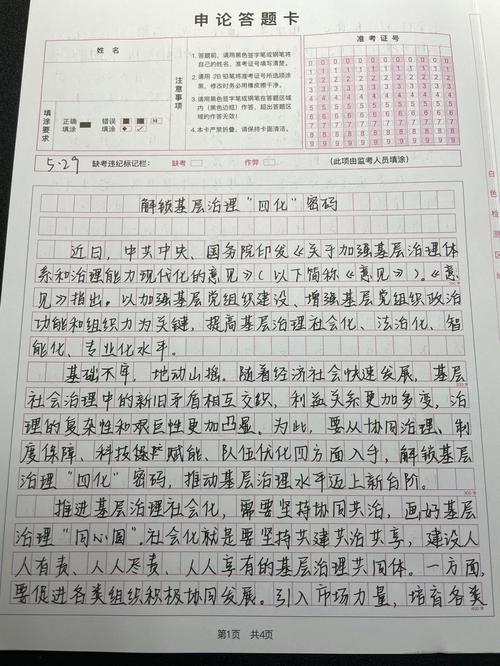 申论答题卡
姓名
准考证号
注意事项
1.答题前，请用黑色签字笔或钢笔将自己的姓名、准考证号填写清楚。
2.请用 2B 铅笔将准考证号所选项涂黑，修改时务必用橡皮擦干净。
3.请用黑色签字笔或钢笔在答题区域内（黑色边框）作答，超出答题区域的作答无效！
4.本卡严禁折叠，请保持卡面清洁。
填涂要求
正确填涂
错误填涂
5.29
缺考违纪标记栏：
缺考
作弊
（此项由监考人员填涂）
解锁基层治理“四化”密码
近日，中共中央、国务院印发《关于加强基层治理体
系和治理能力现代化的意见》（以下简称《意见》）。《意
见》指出。以加强基层党组织建设、增强基层党组织政治
功能和组织力为关键，提高基层治理社会化、法治化、智
能化、专业化水平。
基础不牢，地动山摇。随着经济社会快速发展，基层
社会治理中的新旧矛盾相互交织，利益关系更加多变，治
理的复杂性和艰巨性更加凸显。为此，要从协同治理、制
度保障、科技赋能、队伍优化四方面入手，解锁基层
治理“四化”密码，推动基层治理水平迈上新台阶。
推进基层治理社会化，需要坚持协同共治，画好基层
治理“同心圆”。社会化就是要坚持共建共治共享，建设人
人有责、人人尽责、人人享有的基层治理共同体。一方面，
要促进各类组织积极协同发展。引入市场力量，培育各类
第1页 共4页